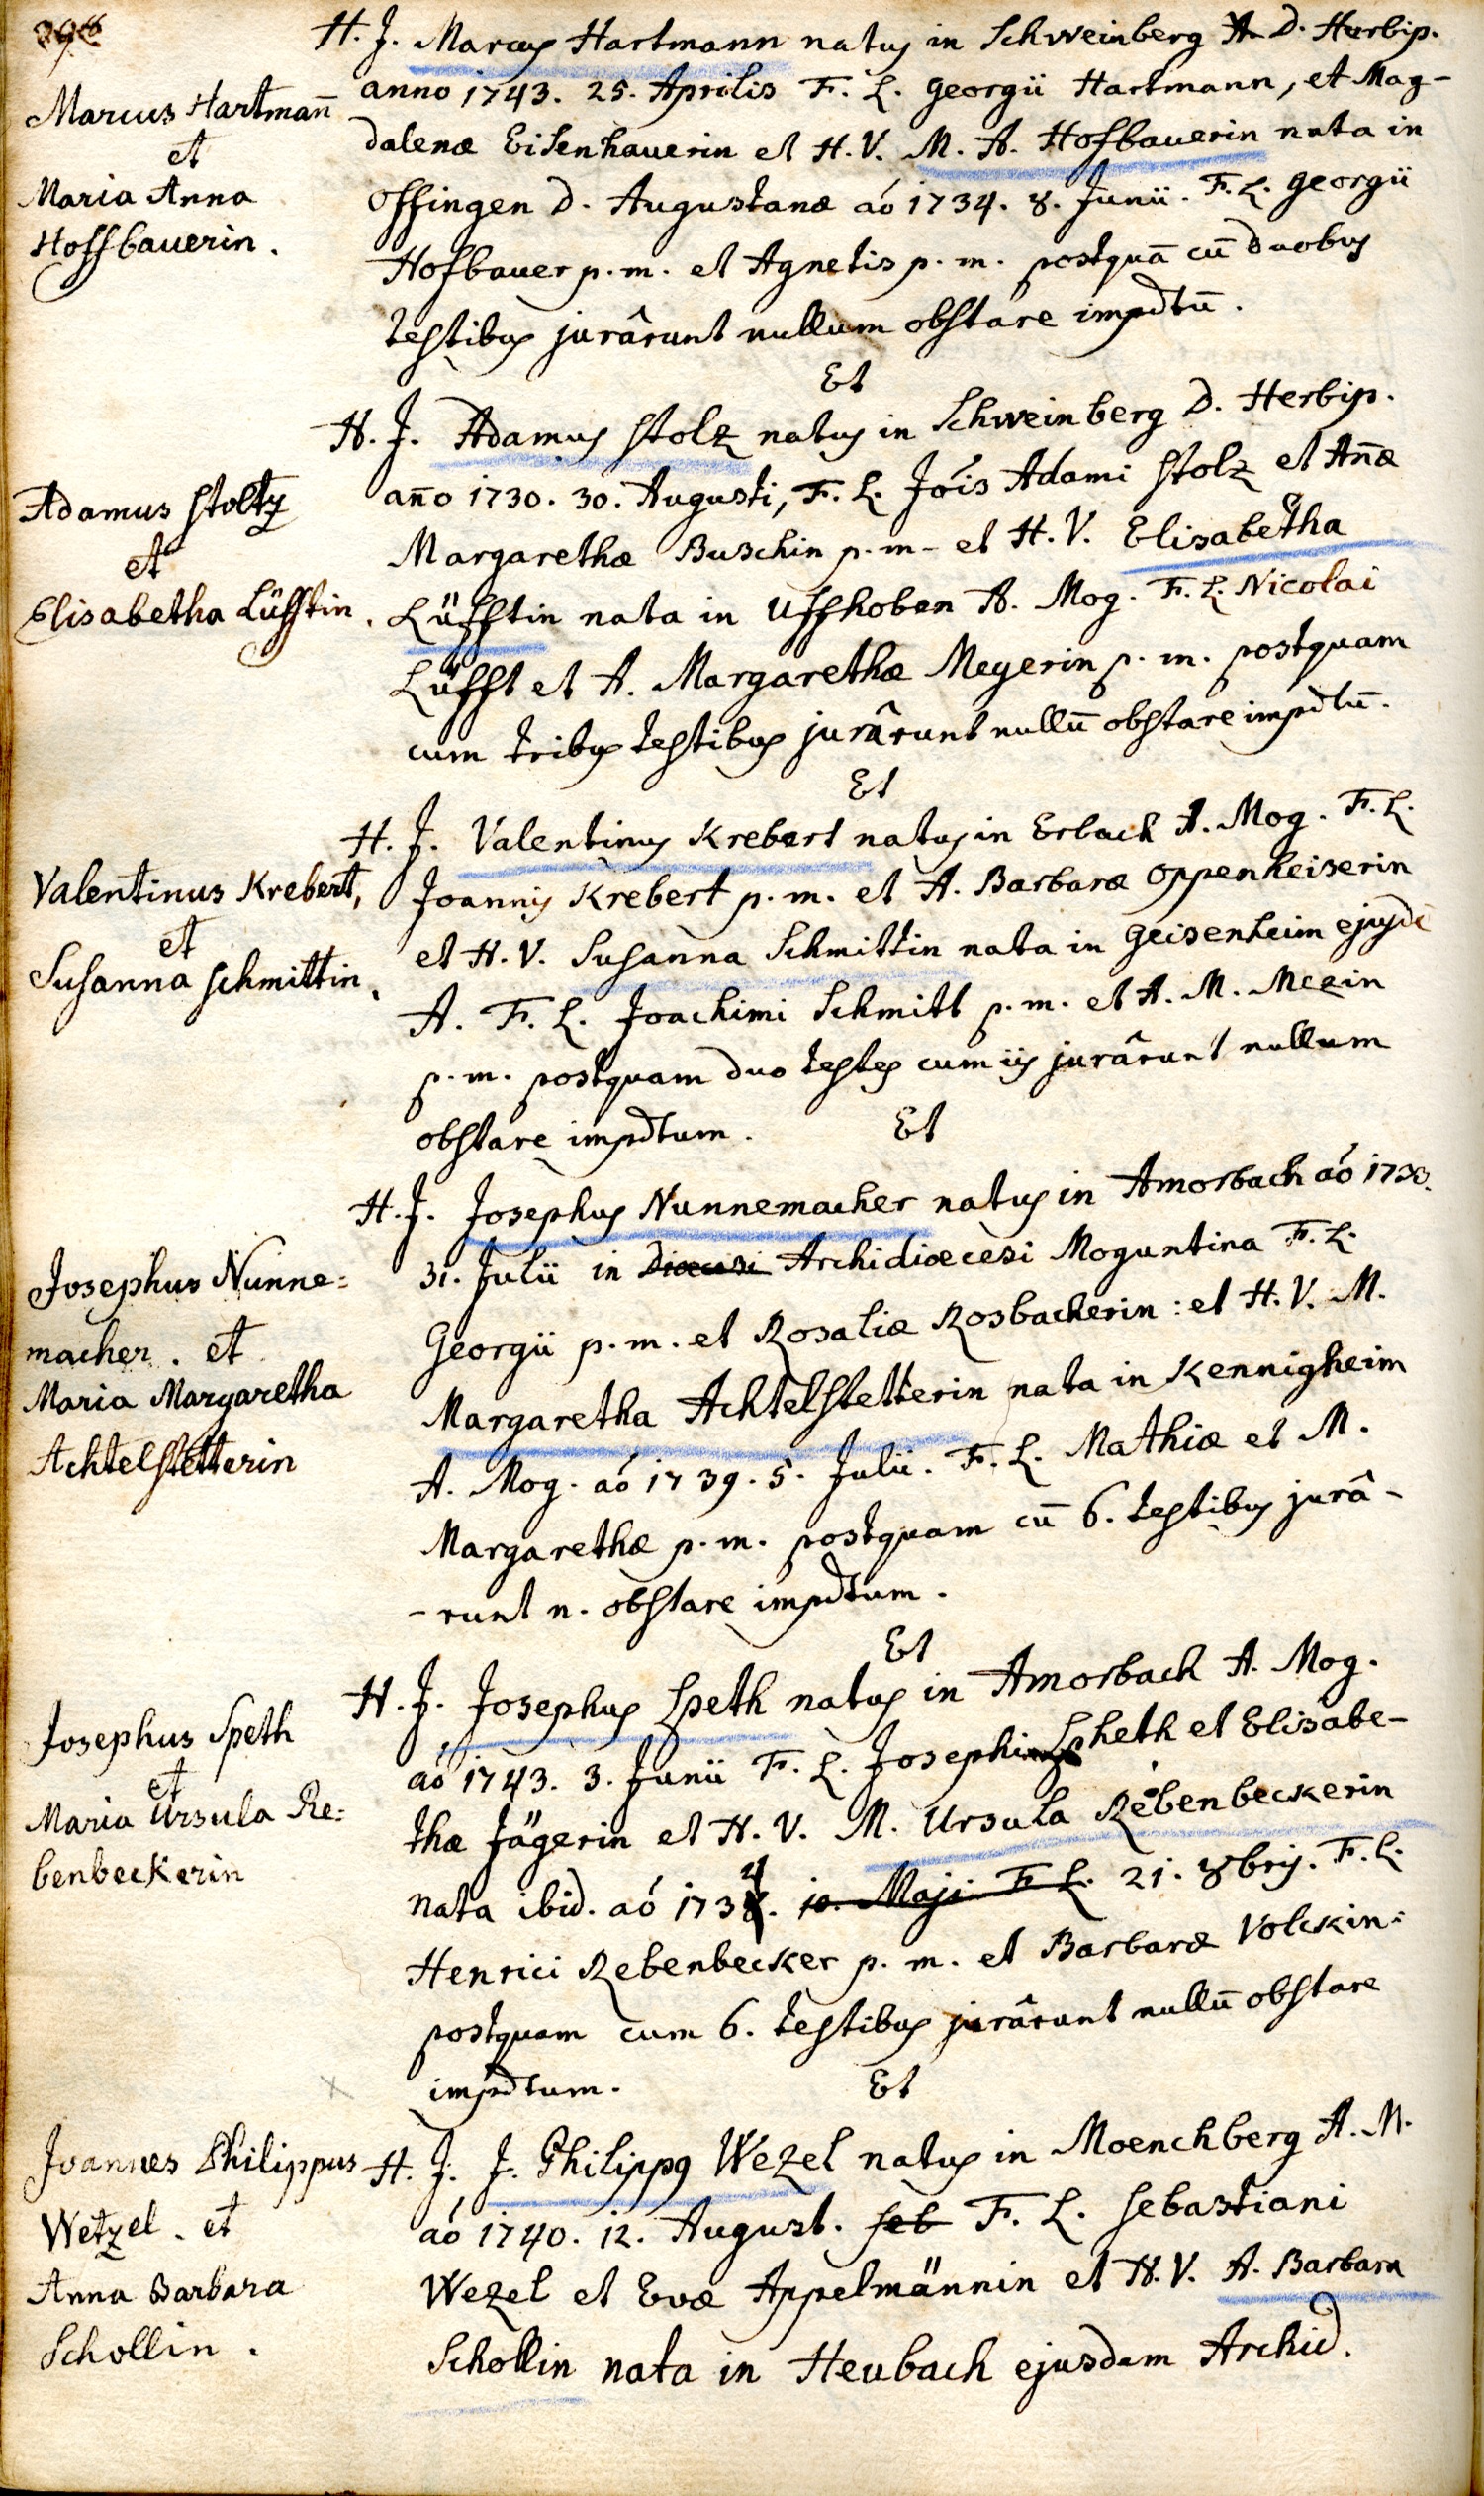 Marcus Hartmañ
et
Maria Anna
Hoffbauerin.
H. J. Marcus Hartmann natus in Schweinberg D. Herbip.
anno 1743. 25. Aprilis F. L. Georgii Hartmann, et Mag-
dalenæ Eisenhauerin et H. V. M. A. Hofbauerin nata in
Offingen D. Augustanæ aó 1734. 8. Junii. F. L. Georgii
Hofbauer p. m. et Agnetis p. m. postquā cū duobus
testibus jurârunt nullum obstare impdtū.
Et
Adamus Stoltz
et
Elisabetha Lüfftin.
H. J. Adamus Stolz natus in Schweinberg D. Herbip.
añо 1730. 30. Augusti, F. L. Jóis Adami Stolz et Añæ
Margarethæ Buschin p. m. et H. V. Elisabetha
Lüfftin nata in Uffhoben A. Mog. F. L. Nicolai
Lüfft et A. Margarethæ Meyerin p. m. postquam
cum tribus testibus jurârunt nullū obstare impdtū.
Et
Valentinus Krebert,
et
Susanna Schmittin.
H. J. Valentinus Krebert natus in Erbach A. Mog. F. L.
Joannis Krebert p. m. et A. Barbaræ Oppenheiserin
et H. V. Susanna Schmittin nata in Geisenheim ejusd
A. F. L. Joachimi Schmitt p. m. et A. M.
p. m. postquam duo testes cum iis jurârunt nullum
obstare impdtum. Et
Josephus Nunne=
macher. et
Maria Margaretha
Achtelstetterin
H. J. Josephus Nunnemacher natus in Amorbach aó
31. Julii in Diœcesi Archidiœcesi Moguntina F. L.
Georgii p. m. et Rosaliæ Rosbacherin: et H. V. M.
Margaretha Achtelstetterin nata in Kennigheim
A. Mog. aó 1739. 5. Julii. F. L. Mathiæ et M.
Margarethæ p. m. postquam cū 6. testibus jurâ-
-runt n. obstare impdtum.
Et
Josephus Speth
et
Maria Ursula Re=
benbeckerin
H. J. Josephus Speth natus in Amorbach A. Mog.
aó 1743. 3. Junii F. L. Josephi Spheth et Elisabe-
thæ Jägerin et H. V. M. Ursula Rebenbeckerin
nata ibid. aó 173 . 10. Maji F L. 21. 8bris. F. L.
Henrici Rebenbecker p. m. et Barbaræ Volckin:
postquam cum 6. testibus jurârunt nullū obstare
impdtum. Et
Joannes Philippus
Wetzel. et
Anna Barbara
Schollin.
H. J. J. Philippus Wezel natus in Moenchberg A. M.
aó 1740. 12. August. seb F. L. Sebastiani
Wezel et Evæ Appelmännin et H. V. A. Barbara
Schollin nata in Heubach ejusdem Archid.